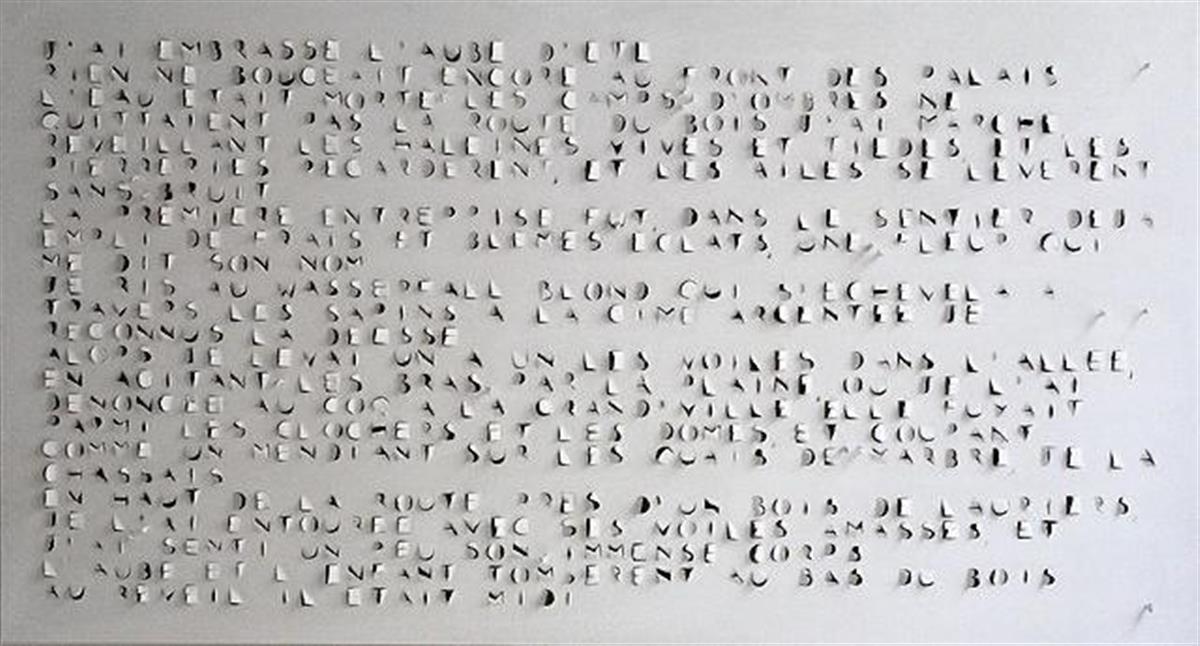 J'AI EMBRASSE L'AUBE D'ETE
RIEN NE BOUGEAIT ENCORE AU FRONT DES PALAIS
L'EAU ETAIT MORTE. LES CAMPS D'OMBRES NE
QUITTAIENT PAS LA ROUTE DU BOIS J'AI MARCHE,
REVEILLANT LES HALEINES VIVES ET TIEDES, ET LES
PIERRERIES REGARDERENT, ET LES AILES SE LEVERENT
SANS BRUIT
LA PREMIERE ENTREPRISE FUT, DANS LE SENTIER DEJA
EMPLI DE FRAIS ET BLEMES ECLATS, UNE FLEUR QUI
ME DIT SON NOM
JE RIS AU WASSERFALL BLOND QUI S'ECHEVELA A
TRAVERS LES SAPINS A LA CIME ARGENTEE JE
RECONNUS LA DEESSE
ALORS JE LEVAI UN A UN LES VOILES DANS L'ALLEE,
EN AGITANT LES BRAS. PAR LA PLAINE, OU JE L'AI
DENONCEE AU COQ A LA GRAND'VILLE ELLE FUYAIT
PARMI LES CLOCHERS ET LES DOMES, ET COURANT
COMME UN MENDIANT SUR LES QUAIS DE MARBRE, JE LA
CHASSAIS
EN HAUT DE LA ROUTE PRES D'UN BOIS DE LAURIERS,
JE L'AI ENTOUREE AVEC SES VOILES AMASSES ET
J'AI SENTI UN PEU SON IMMENSE CORPS
L'AUBE ET L'ENFANT TOMBERENT AU BAS DU BOIS
AU REVEIL IL ETAIT MIDI